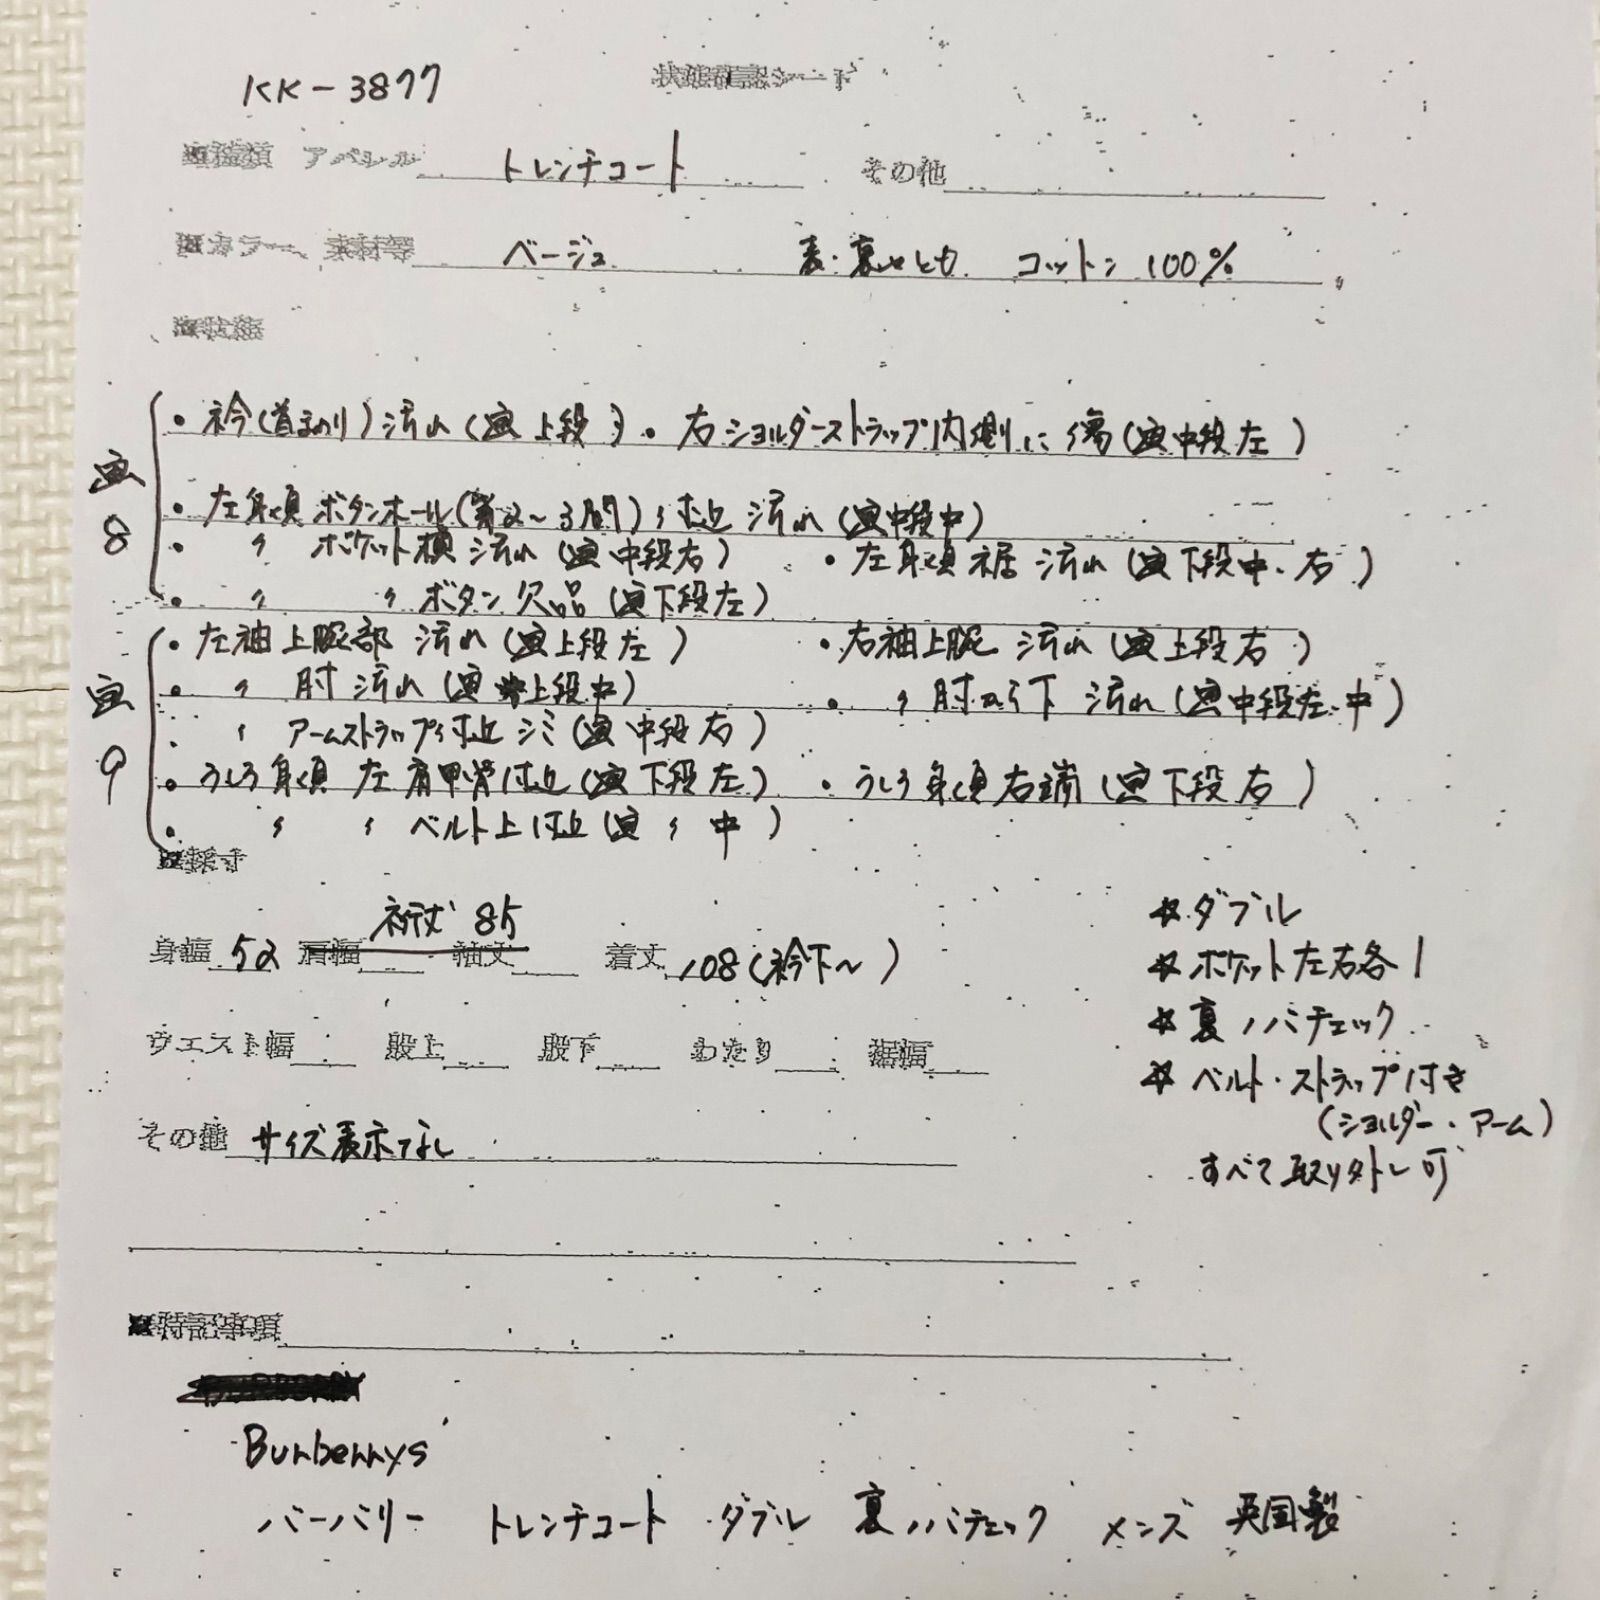 KK-3877
状態確認シート
■種類 アパレル トレンチコート その他
■カラー、素材等 ベージュ 表・裏地とも コットン 100%
■状態
画8
・衿(首まわり)汚れ(画上段) ・右ショルダーストラップ内側に傷(画中段左)
・左身頃ボタンホール(第2〜3間)付近 汚れ(画中段中)
・〃 ポケット横 汚れ(画中段右) ・左身頃裾 汚れ(画下段中・右)
・〃 〃 ボタン欠品(画下段左)
画9
・左袖上腕部 汚れ(画上段左) ・右袖上腕 汚れ(画上段右)
・〃 肘 汚れ(画上段中) ・〃 肘から下 汚れ(画中段左・中)
・〃 アームストラップ付近 シミ(画中段右)
・うしろ身頃 左肩甲骨付近(画下段左) ・うしろ身頃右端(画下段右)
・〃 〃 ベルト上付近(画〃中)
■採寸
裄丈 85
身幅 52 肩幅 袖丈 着丈 108(衿下〜)
ウエスト幅 股上 股下 わたり 裾幅
その他 サイズ表示なし
☆ダブル
☆ポケット左右各1
☆裏ノバチェック
☆ベルト・ストラップ付き
(ショルダー・アーム)
すべて取り外し可
■特記事項
Burberrys
バーバリー トレンチコート ダブル 裏ノバチェック メンズ 英国製